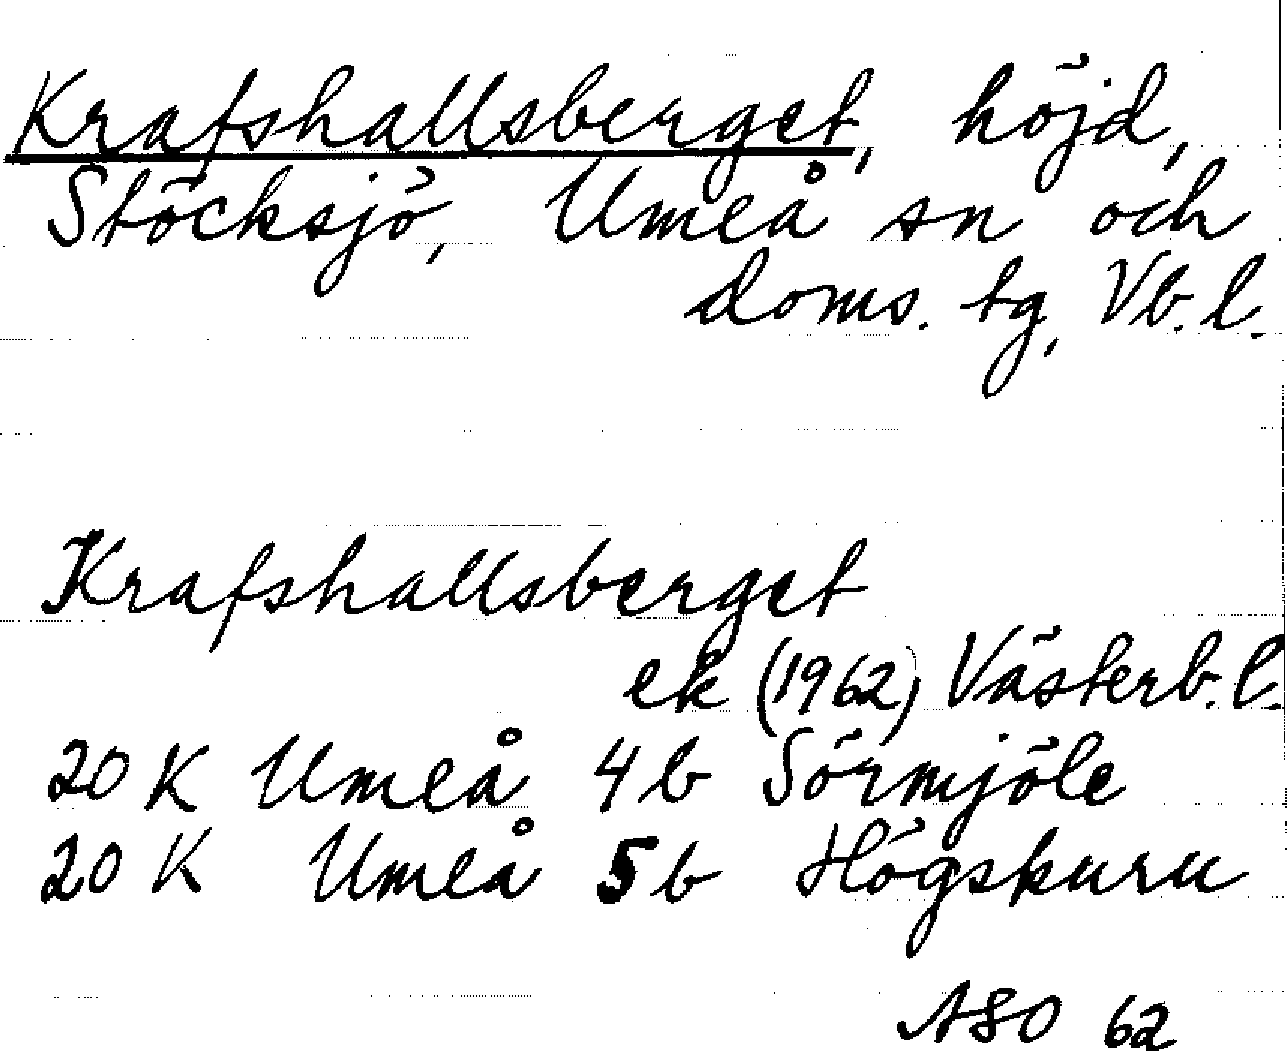 Krafshallsberget, höjd,
Stöcksjö, Umeå sn och
doms. tg, Vb. l.
Krafshallsberget
ek (1962) Västerb. l.
20 K Umeå 4 b Sörmjöle
20 K Umeå 5 b Högskuru
ASO 62